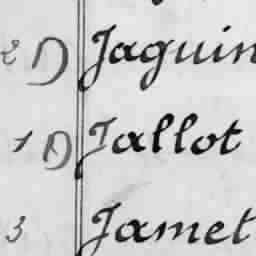 2 D Jaguin
1 D Jallot
3 Jamet